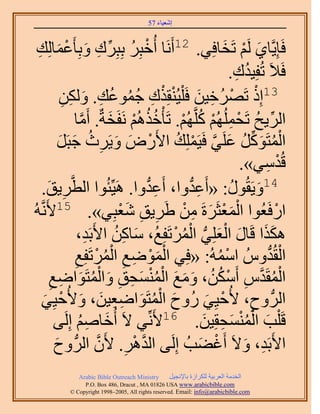 إشعياء 57
فَإِيَّايَ لَمْ تَخَافِي. 12أَنَا أُخْبِرُ بِبِرِّكِ وَبِأَعْمَالِكِ
فَلاَ تُفِيدُكِ.
13إِذْ تَصْرُخِينَ فَلْيُنْقِذْكِ جُمُوعُكِ. وَلكِنِ
الرِّيحُ تَحْمِلُهُمْ كُلَّهُمْ. تَأْخُذُهُمْ نَفَخَةٌ. أَمَّا
الْمُتَوَكِّلُ عَلَيَّ فَيَمْلِكُ الأَرْضَ وَيَرِثُ جَبَلَ
قُدْسِي».
14وَيَقُولُ: «أَعِدُّوا، أَعِدُّوا. هَيِّئُوا الطَّرِيقَ.
ارْفَعُوا الْمَعْثَرَةَ مِنْ طَرِيقِ شَعْبِي». 15لأَنَّهُ
هكَذَا قَالَ الْعَلِيُّ الْمُرْتَفِعُ، سَاكِنُ الأَبَدِ،
الْقُدُّوسُ اسْمُهُ: «فِي الْمَوْضِعِ الْمُرْتَفِعِ
الْمُقَدَّسِ أَسْكُنُ، وَمَعَ الْمُنْسَحِقِ وَالْمُتَوَاضِعِ
الرُّوحِ، لأُحْيِيَ رُوحَ الْمُتَوَاضِعِينَ، وَلأُحْيِيَ
قَلْبَ الْمُنْسَحِقِينَ. 16لأَنِّي لاَ أُخَاصِمُ إِلَى
الأَبَدِ، وَلاَ أَغْضَبُ إِلَى الدَّهْرِ. لأَنَّ الرُّوحَ
Arabic Bible Outreach Ministry الخدمة العربية للكرازة بالإنجيل
P.O. Box 486, Dracut , MA 01826 USA www.arabicbible.com
Copyright 1998–2005, All rights reserved. Email: info@arabicbible.com